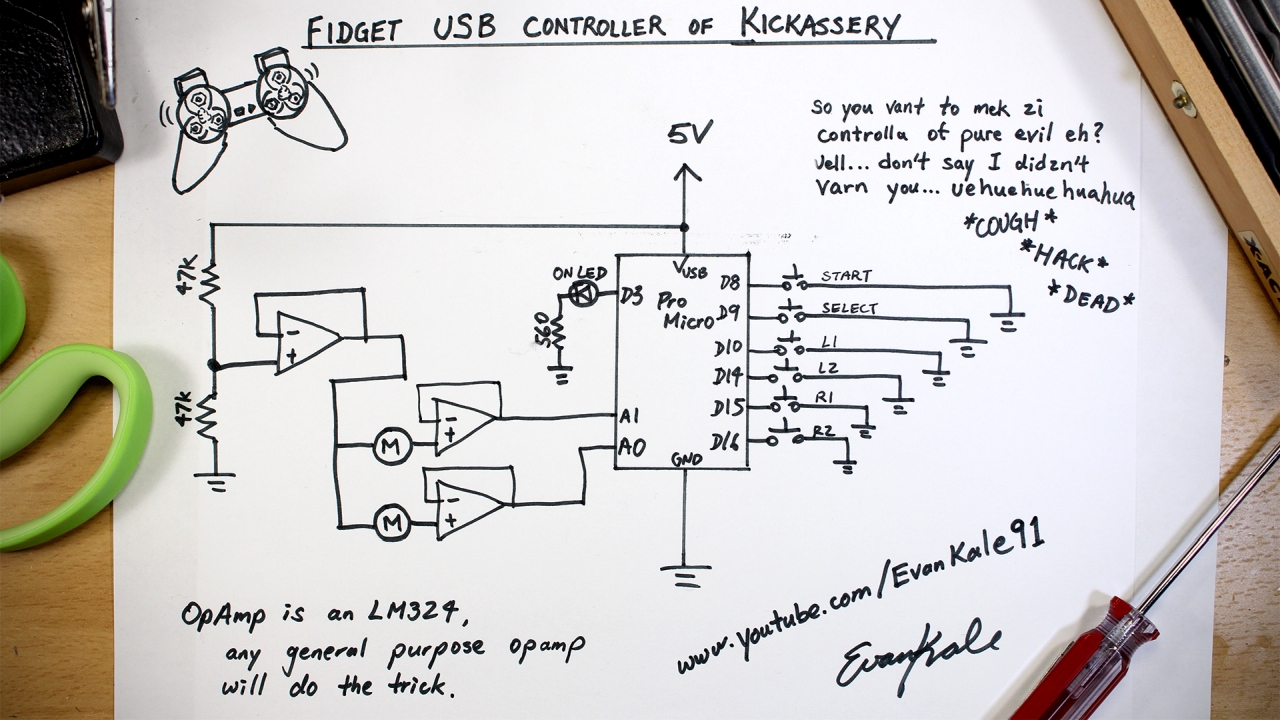 FIDGET USB CONTROLLER OF KICKASSERY
So you vant to mek zi
controlla of pure evil eh?
Vell... don't say I didzn't
Varn you... uehuehuehuahua
*COUGH*
*HACK*
*DEAD*
5V
47K
47K
ON LED
560
VUSB
D3
Pro
Micro
D8
D9
D10
D14
D15
D16
A1
A0
GND
START
SELECT
L1
L2
R1
R2
-
+
-
+
M
-
+
M
OpAmp is an LM324,
any general purpose opamp
will do the trick.
www.youtube.com/EvanKale91
EvanKale
X-AC